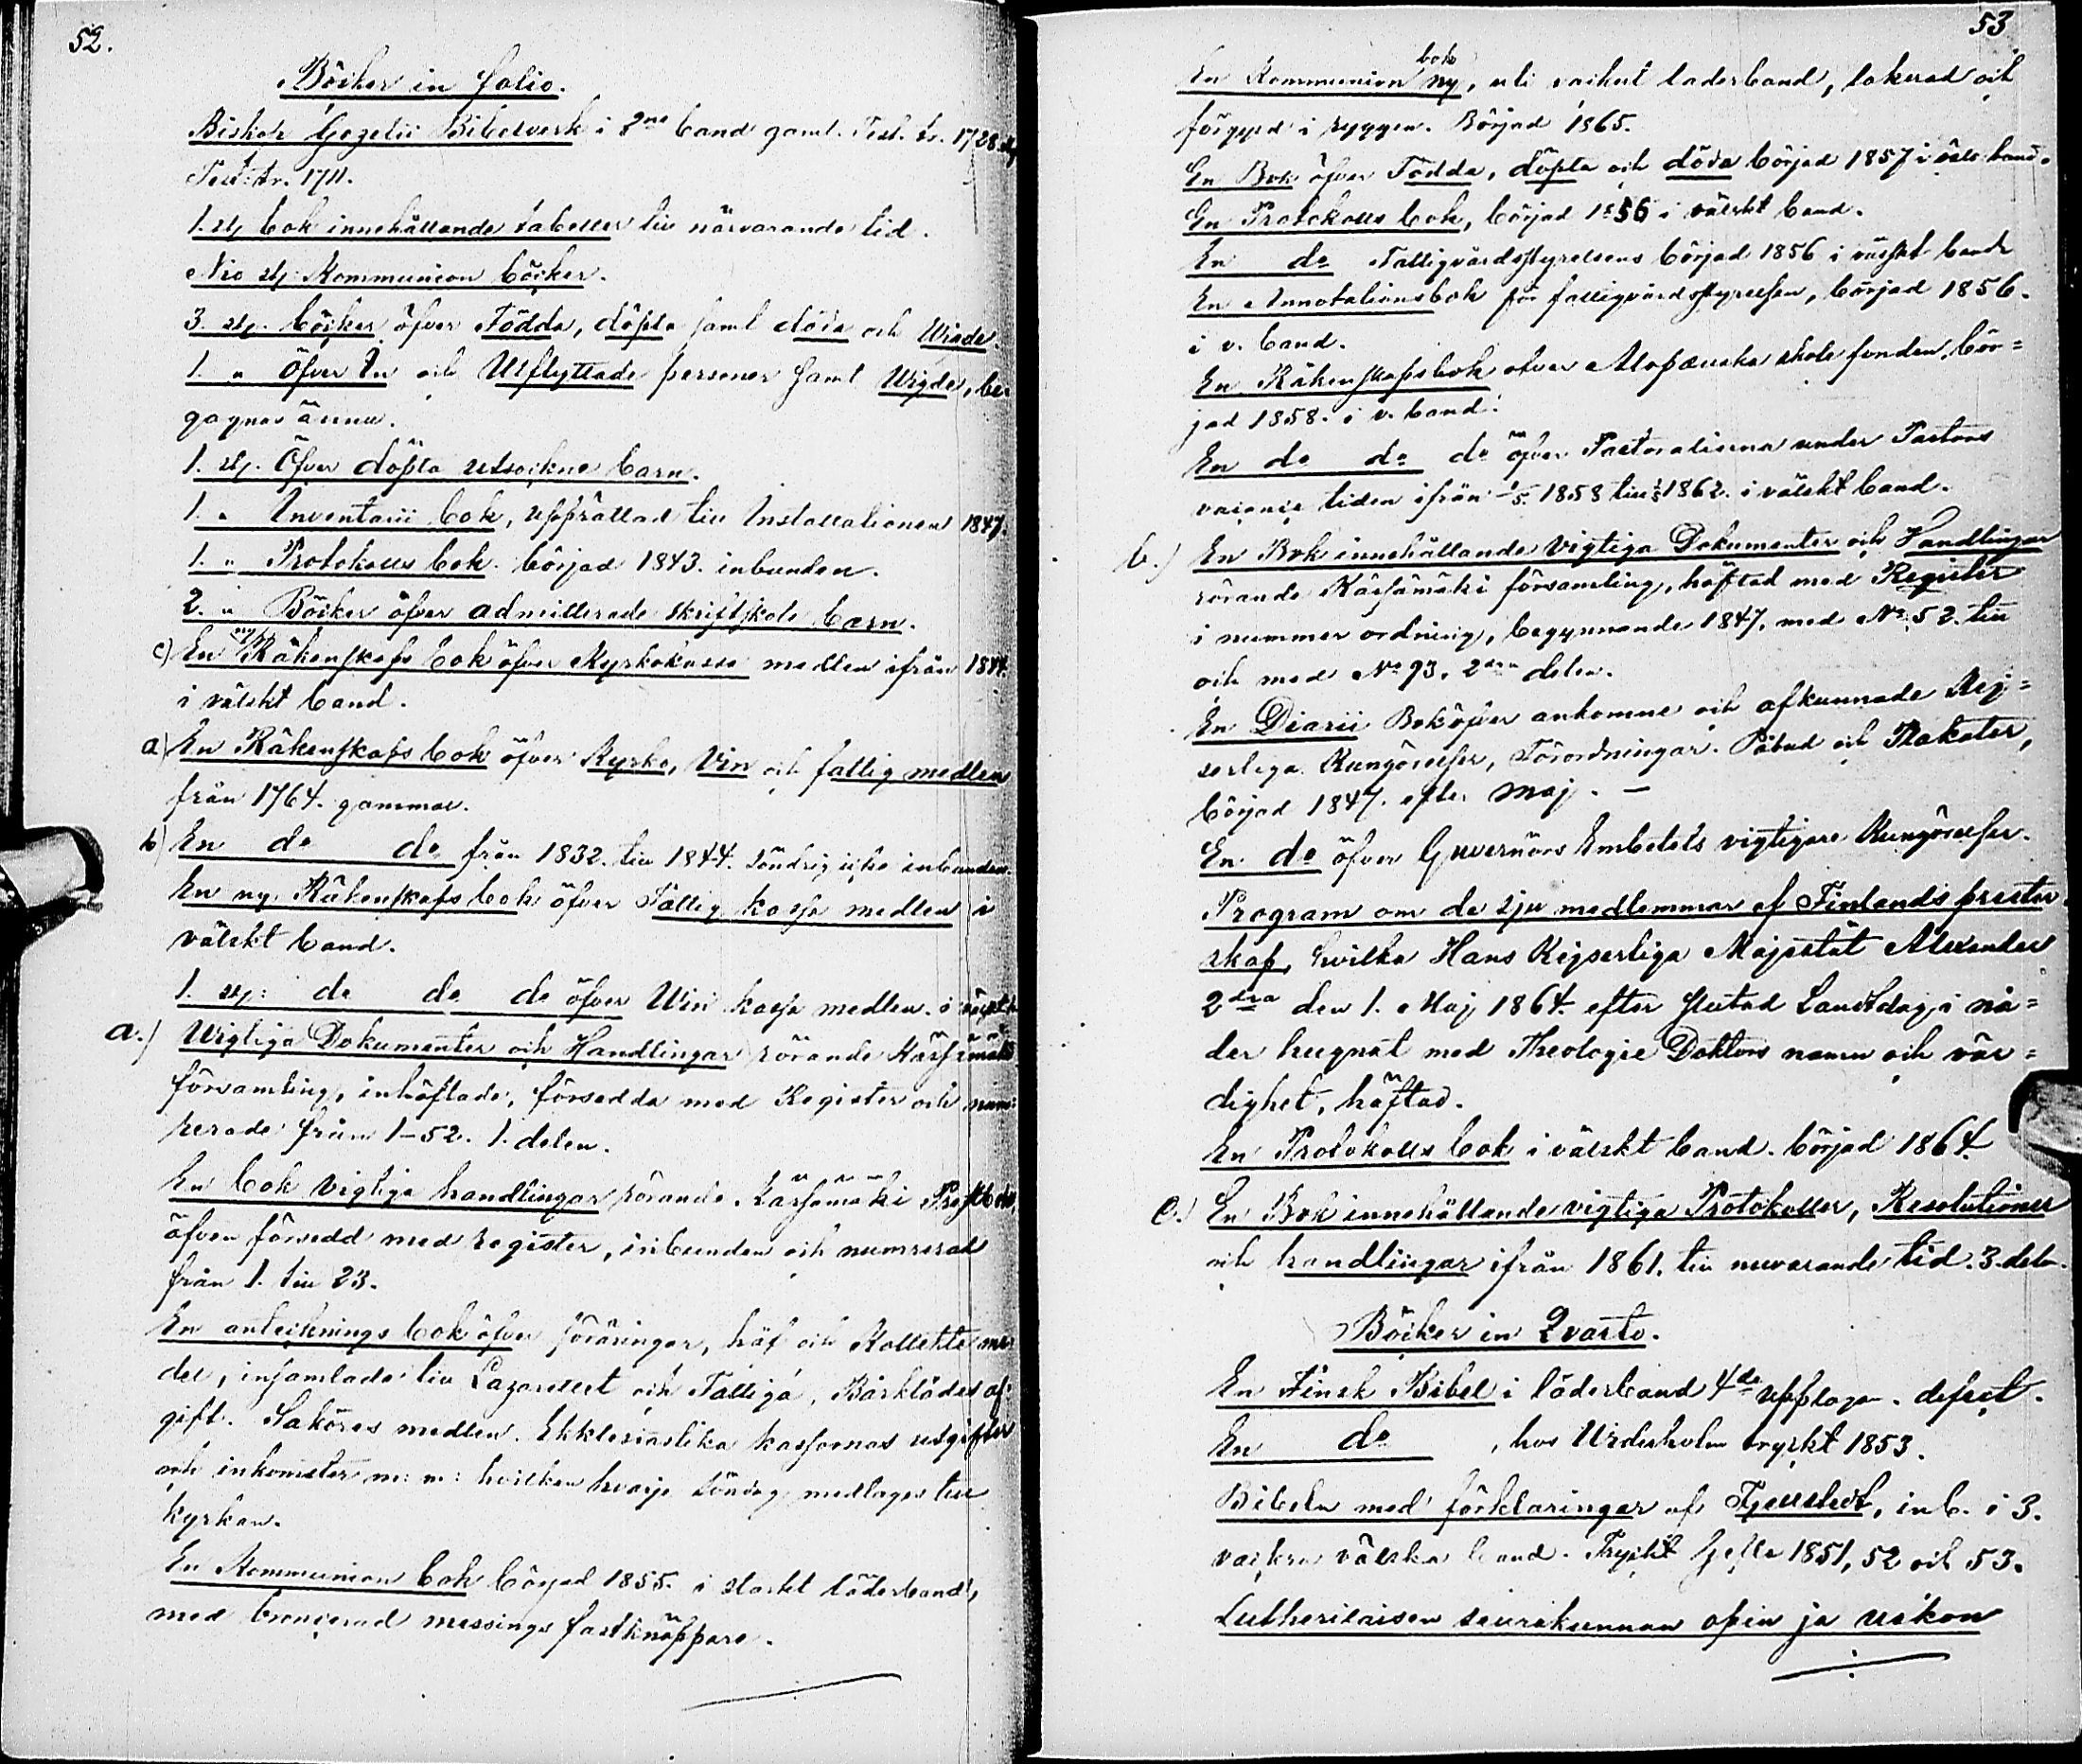 52.
Böcker in folio.
Biskop Gezelii Bibelverk i 2ne band gaml. Test. tr. 1728. ny
Test: tr. 1711.
1. st. bok innehållande tabeller till närvarande tid.
Nio st: Kommunion böcker.
3. st. böcker öfver Födda, döpta samt döda och Wigde.
1. " Öfver In och Utflyttade personer samt Wigde, be
gagnas ännu.
1. st. Öfver döpta utsockne barn.
1. " Inventarii bok, upprättad till Installationen 1847.
1. " Protokolls bok. börjad 1843. inbunden.
2. " Böcker öfver admitterade skriftskole barn.
c) En ny Räkenskaps bok öfver Kyrkokassa medlen ifrån 1844.
i välskt band.
a) En Räkenskaps bok öfver Kyrko, Vin och fattig medlen
från 1764. gammal.
b) En do do från 1832. till 1844. söndrig icke inbunden.
En ny Räkenskaps bok öfver Fattig kassa medlen i
välskt band.
1. st: do do do öfver Win kassa medlen. i
a.) Wigtiga Dokumenter och Handlingar rörande Kärsämäki
församling, inhäftade, försedda med Register och num:
rerade från 1-52. 1. delen.
En bok vigtiga handlingar rörande Kärsämäki Prestbol,
äfven försedd med register, inbunden och numrerad
från 1. till 23.
En antecknings bok öfver föräringar, håf och Kollekte me
del, insamlade till Lazarettet och Fattiga, Bårklädes af
gift. Saköres medlen. Ekklesiastika kassornas utgifter
och inkomster m: m: hvilken hvarje Söndag medtages till
kyrkan.
En Kommunion bok börjad 1855. i starkt läderband,
med broncerad messings fastknäppare.
53
En Kommunion bok ny, uti vackert läderband, lakerad och
förgyld i ryggen. Börjad 1865.
En Bok öfver Födda, döpta och döda börjad 1857 i välskt band.
En Protokolls bok, börjad 1856 i välskt band.
En do Fattigvårdsstyrelsens börjad 1856 i välskt band
En Annotationsbok för fattigvårdsstyrelsen, börjad 1856.
i v. band.
En Räkenskapsbok öfver Alopæuska skole fonden, bör=
jad 1858. i v. band.
En do do do öfver Pastoralierna under Pastors
vacancie tiden ifrån 1/5 1858 till 1/5 1862. i välskt band.
b.) En Bok innehållande Vigtiga Dokumenter och Handlingar
rörande Kärsämäki församling, häftad med Register
i nummer ordning, begynnande 1847. med No 52. till
och med No 93. 2dra delen.
En Diarii Bok öfver ankomne och afkunnade Kej=
serliga Kungörelser, Förordningar. Påbud och Plakater,
börjad 1847. efter Maj. —
En do öfver Guvernörs Embetets vigtigare Kungörelser.
Program om de sju medlemmar af Finlands prester
skap, hvilka Hans Kejserliga Majestät Alexander
2dra den 1. Maj 1864. efter slutad Landtdag, i nå=
der hugnat med Theologie Doktors namn och vär=
dighet, häftad.
En Protokolls bok i välskt band. börjad 1864.
c.) En Bok innehållande vigtiga Protokoller, Resolutioner
och handlingar ifrån 1861. till nuvarande tid. 3. delen.
Böcker in Qvarto.
En Finsk Bibel i läderband 4de Upplagan. defect.
En do, hos Widerholm tryckt 1853.
Bibeln med förklaringar af Fjellstedt, inb. i 3.
vackra välska band. Tryckt 1851, 52 och 53.
Lutherilaisen seurakunnan opin ja uskon